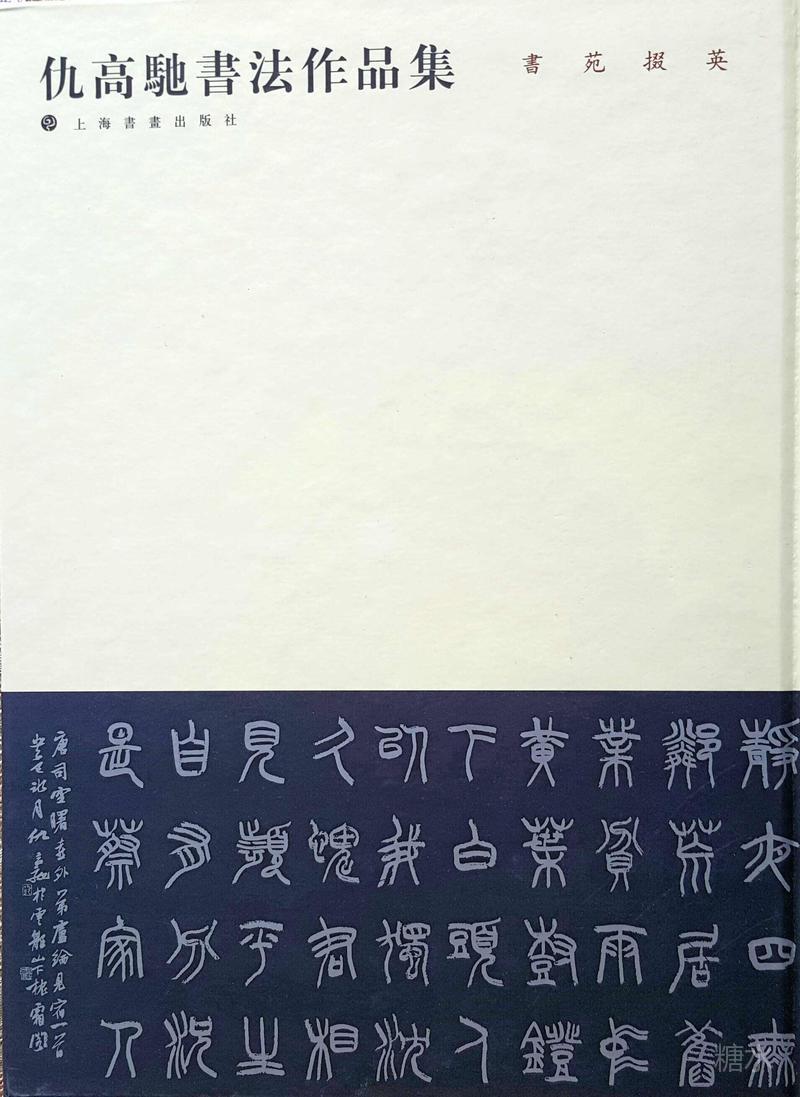 仇高馳書法作品集
書苑掇英
上海書畫出版社
靜夜四無
鄰荒居舊
業貧雨中
黃葉樹鐙
下白頭人
以我獨沈
久媿君相
見頻平生
自有分況
是蔡家人
唐司空曙喜外弟盧綸見宿一首
月仇高馳於雲龍山下枕霜閣
糖水